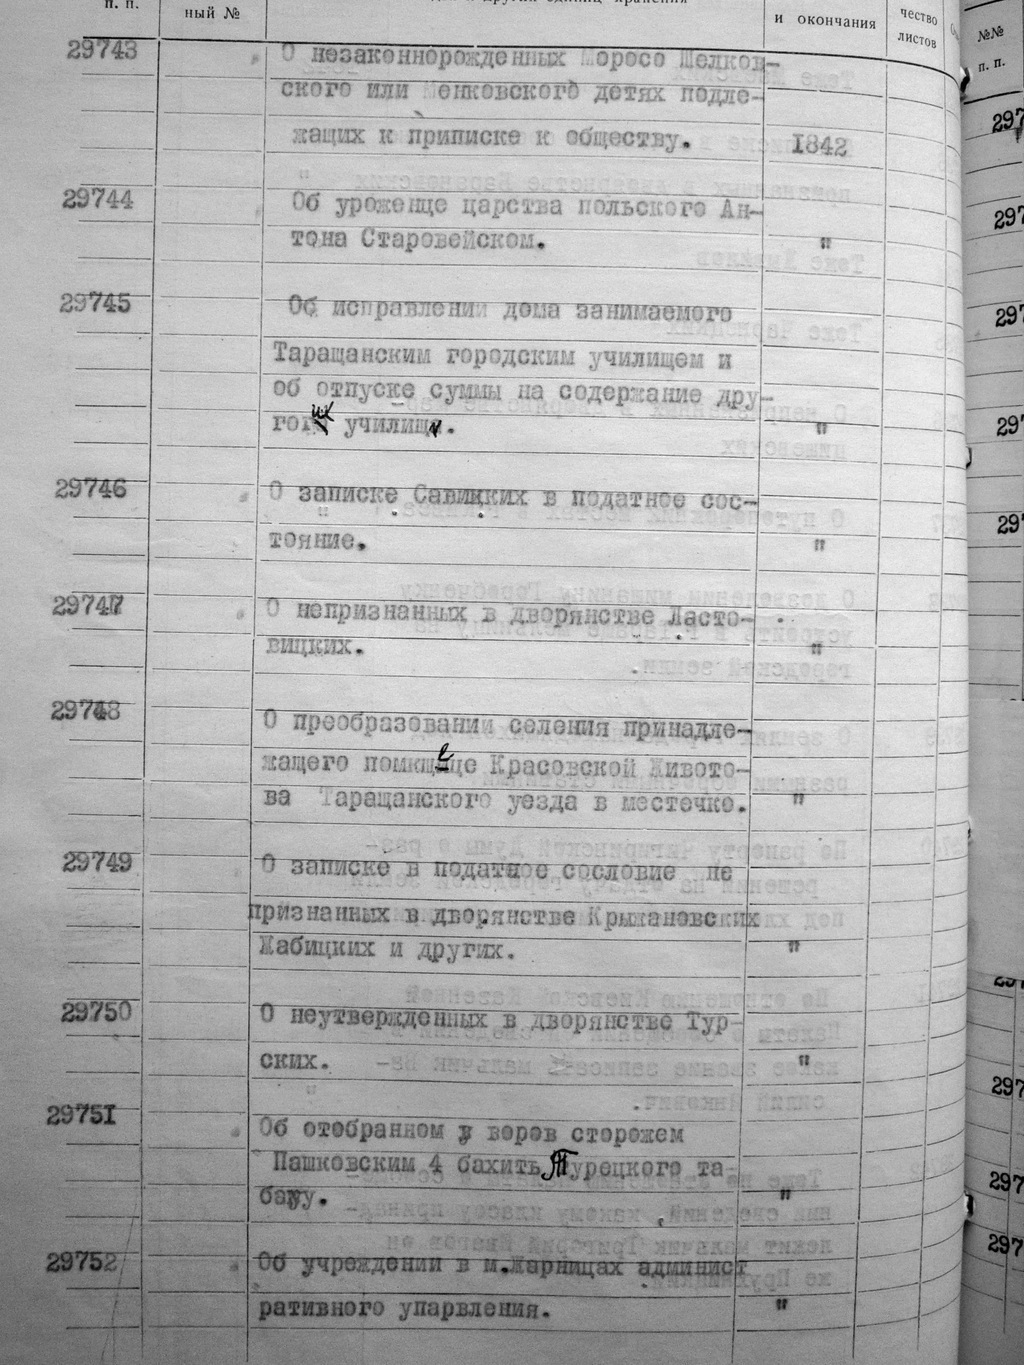 п. п.
ный №
и окончания
чество
листов
№№
п. п.
29743 О незаконнорожденных Моросо Шелков-
ского или Менковского детях подле-
жащих к приписке к обществу. 1842
29744 Об уроженце царства польского Ан-
тона Старовейском. "
29745 Об исправлении дома занимаемого
Таращанским городским училищем и
об отпуске суммы на содержание дру-
гих училищ. "
29746 О записке Савицких в податное сос-
тояние. "
29747 О непризнанных в дворянстве Ласто-
вицких. "
29748 О преобразовании селения принадле-
жащего помещице Красовской Живото-
ва Таращанского уезда в местечко. "
29749 О записке в податное сословие не
признанных в дворянстве Крыжановских
Жабицких и других. "
29750 О неутвержденных в дворянстве Тур-
ских. "
29751 Об отобранном у воров сторожем
Пашковским 4 бахить Турецкого та-
баку. "
29752 Об учреждении в м.Жарницах админист
ративного упарвления. "